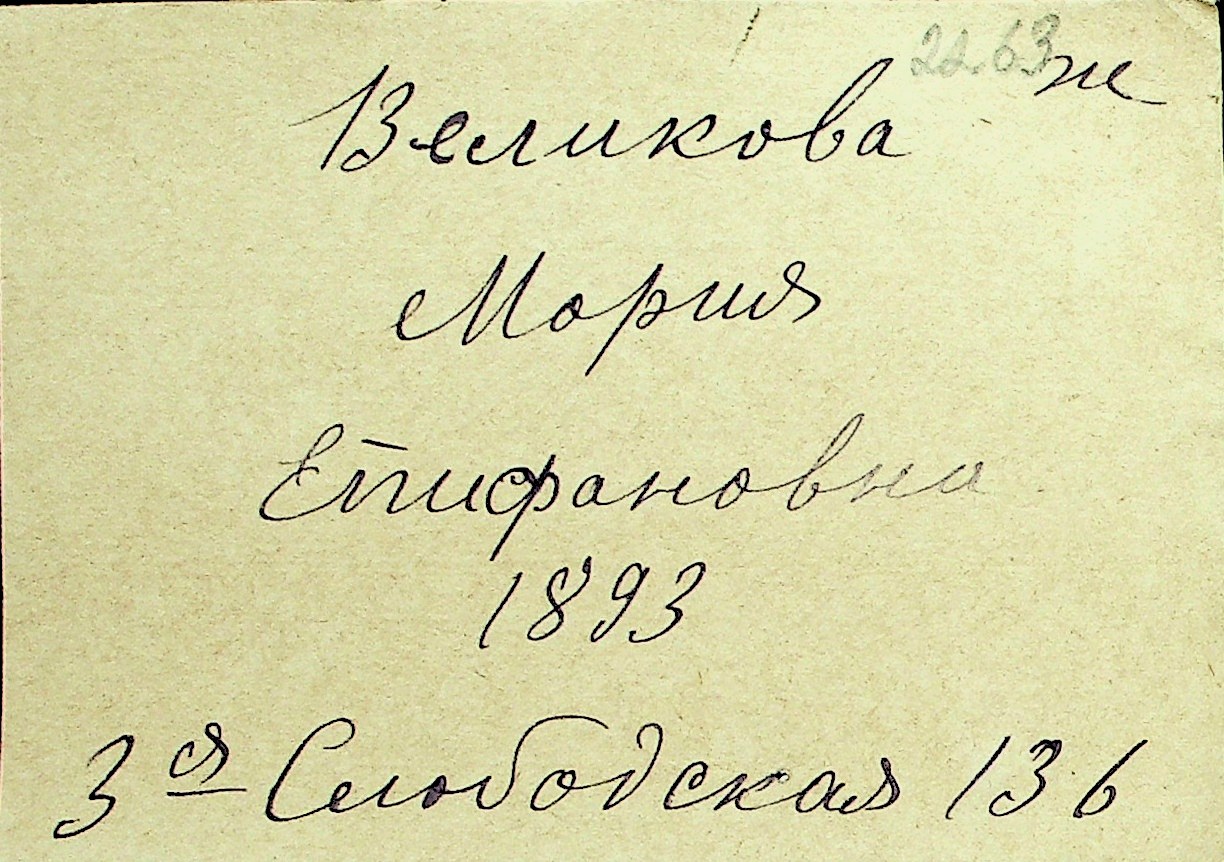 2263 ж
Великова
Мария
Епифановна
1893
3я Слободская 136